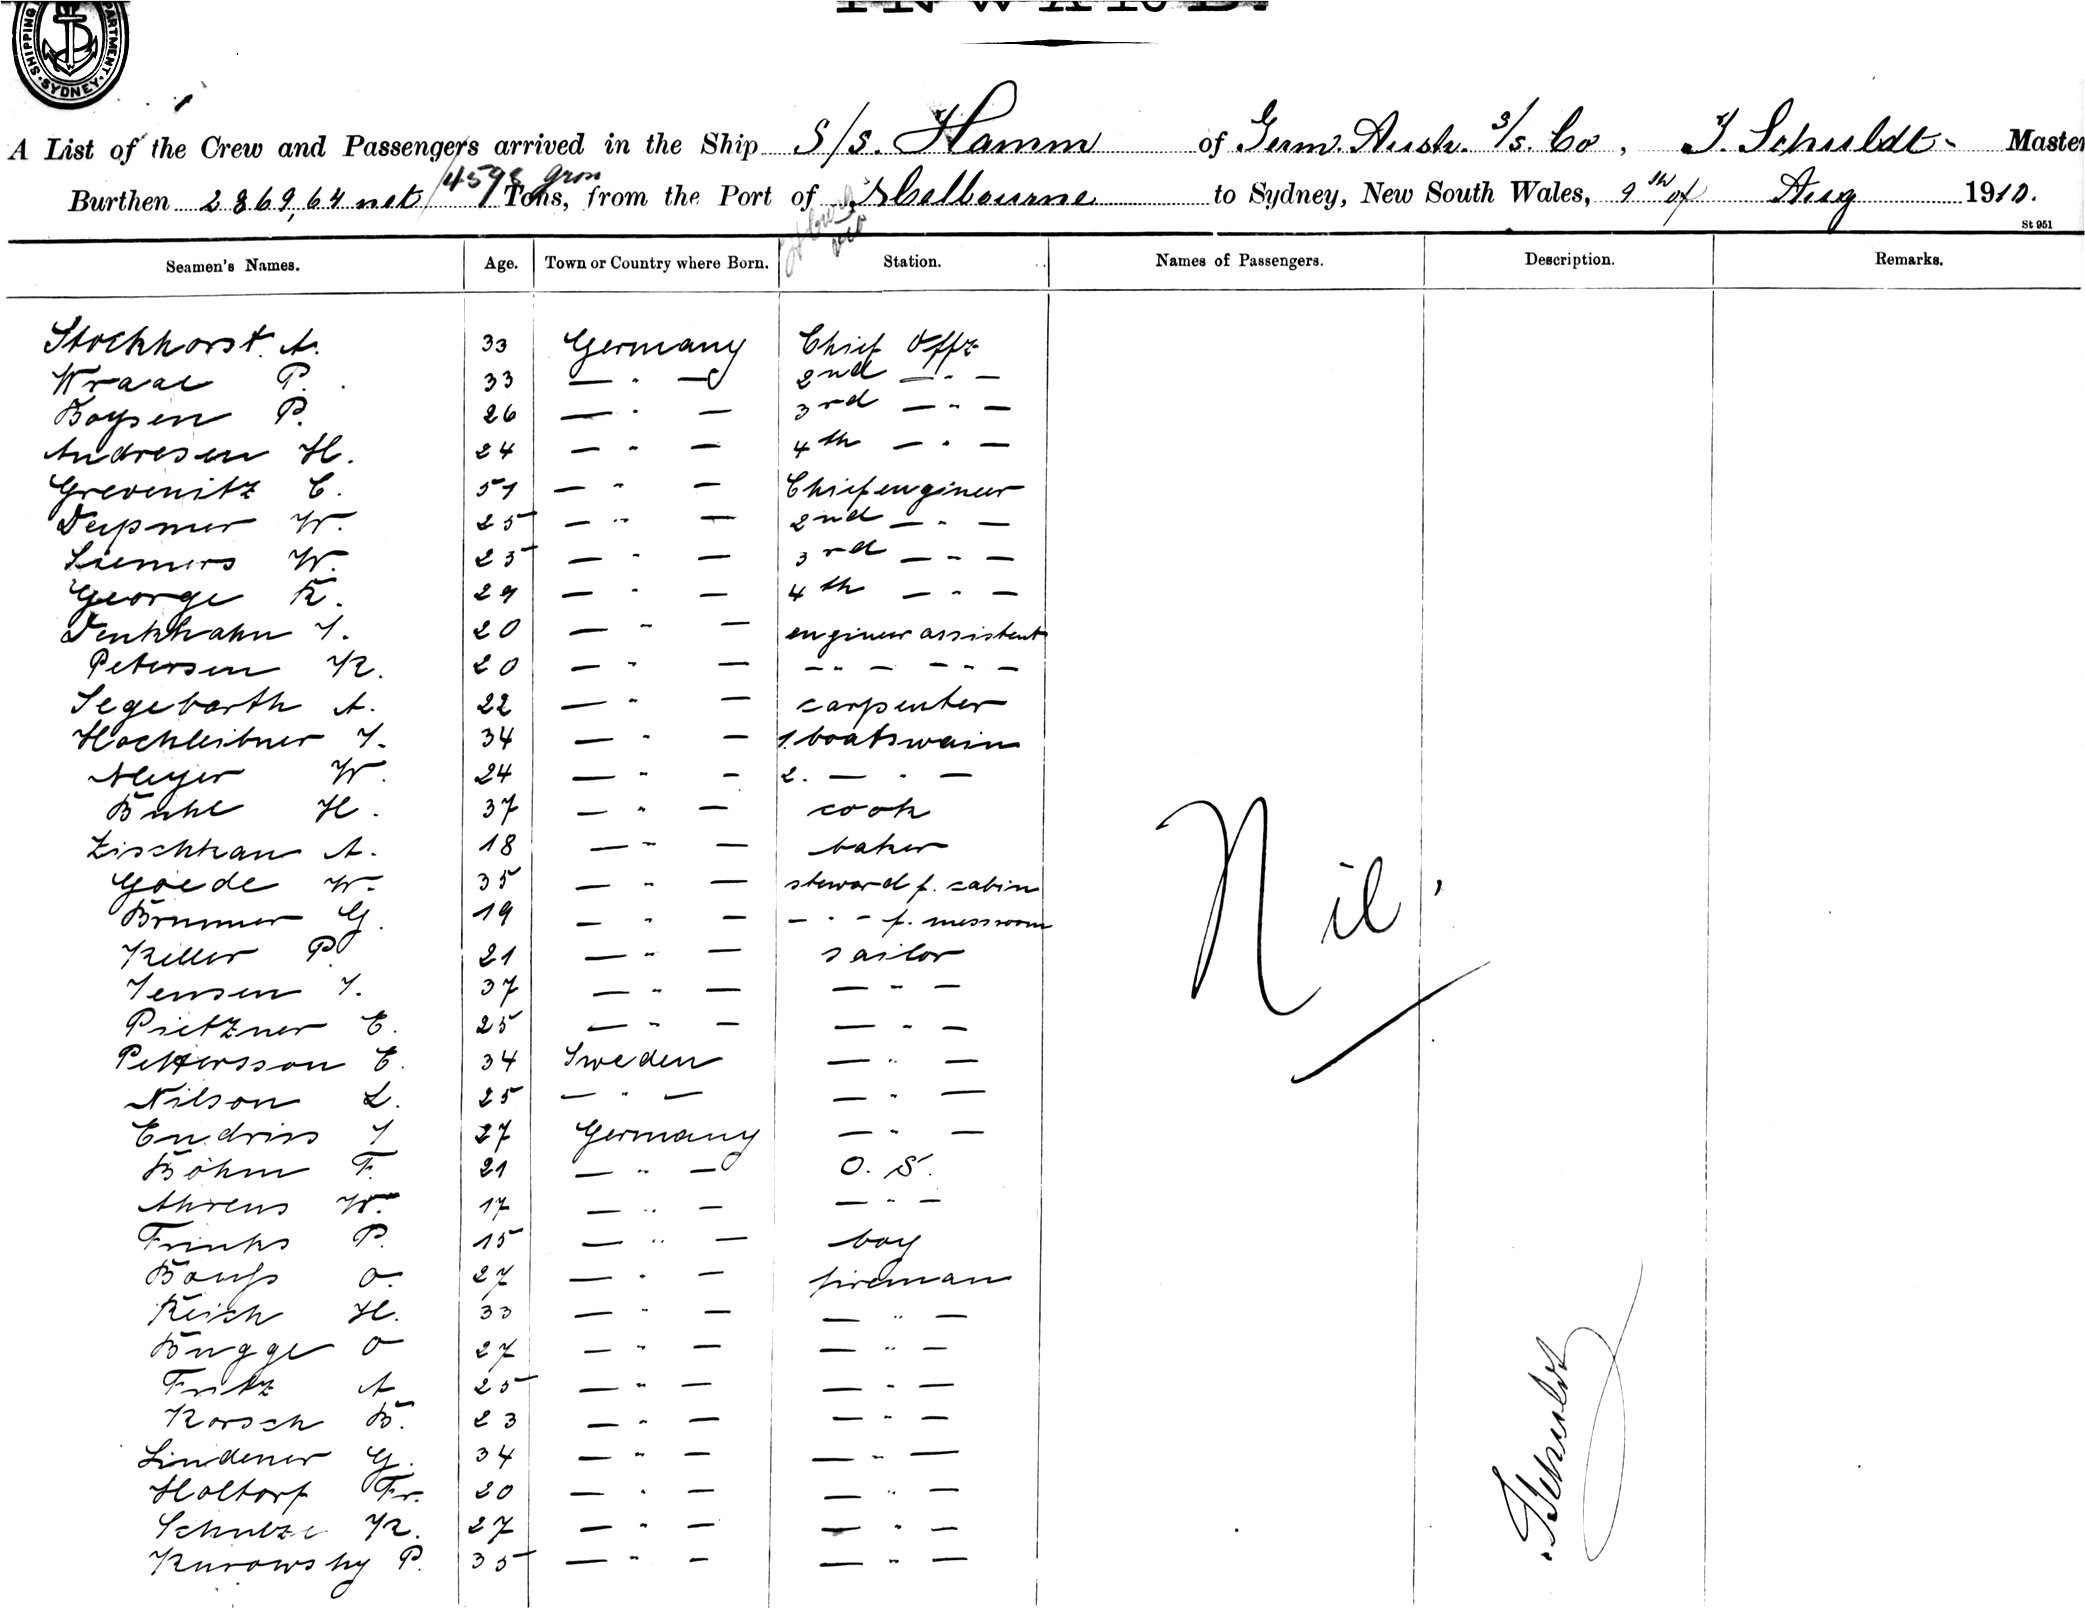 INWARD.
SHIPPING DEPARTMENT. SYDNEY
A List of the Crew and Passengers arrived in the Ship S/s. Hamm of Germ. Austr. S/s. Co, J. Schuldt Master
Burthen 2869,64 net / 4598 gross Tons, from the Port of Melbourne to Sydney, New South Wales, 9th of Aug 1910.
St 951
Seamen's Names. Age. Town or Country where Born. Station. Names of Passengers. Description. Remarks.
Stockhorst. A. 33 Germany Chief Offz
Wraae P. 33 — " — 2nd — " —
Boysen P. 26 — " — 3rd — " —
Andresen H. 24 — " — 4th — " —
Grevenitz C. 51 — " — Chief engineer
W. 25 — " — 2nd — " —
Siemers W. 25 — " — 3rd — " —
George K. 29 — " — 4th — " —
Denkhahn J. 20 — " — engineer assistent
Petersen K. 20 — " — — " — — " —
Segebarth A. 22 — " — carpenter
Hochleitner J. 34 — " — 1. boatswain
Meyer W. 24 — " — 2. — " —
Buhl H. 37 — " — cook
Zischkau A. 18 — " — baker
Goede W. 35 — " — steward f. cabin
Brunner G. 19 — " — — " — f. messroom
Keller P. 21 — " — sailor
Jensen J. 37 — " — — " —
Pietzner E. 25 — " — — " —
Pettersson E. 34 Sweden — " —
Nilson L. 25 — " — — " —
Endriss J 27 Germany — " —
Böhm F. 21 — " — O. S.
Ahrens W. 17 — " — — " —
Frinks P. 15 — " — boy
O. 27 — " — fireman
Reich H. 33 — " — — " —
Bugge O 27 — " — — " —
Fritz A 25 — " — — " —
Korsch B. 23 — " — — " —
Lindener G. 34 — " — — " —
Holtorf Fr. 20 — " — — " —
Schulze K. 27 — " — — " —
Kurowsky P. 35 — " — — " —
Nil.
J. Schuldt